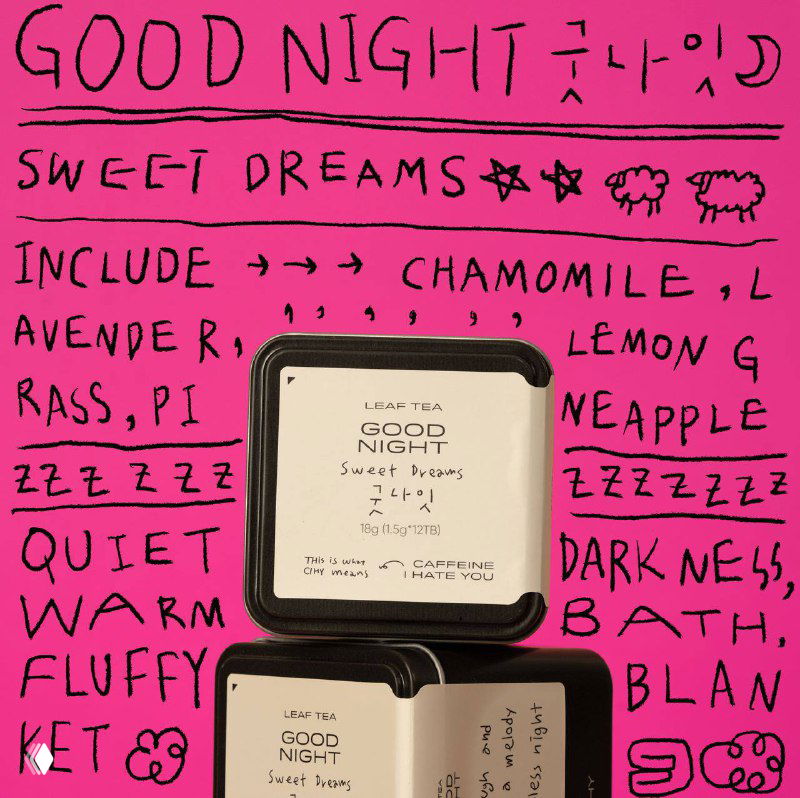 GOOD NIGHT 굿나잇
SWEET DREAMS
INCLUDE → → → CHAMOMILE, L
AVENDER, LEMON G
RASS, PI NEAPPLE
ZZZ Z Z Z ZZZZZZZ
QUIET DARKNESS,
WARM BATH,
FLUFFY BLAN
KET
LEAF TEA
GOOD
NIGHT
Sweet Dreams
굿나잇
18g (1.5g*12TB)
THIS is what CAFFEINE
CIHY means I HATE YOU
LEAF TEA
GOOD
NIGHT
Sweet Dreams
ugh and
a melody
less night